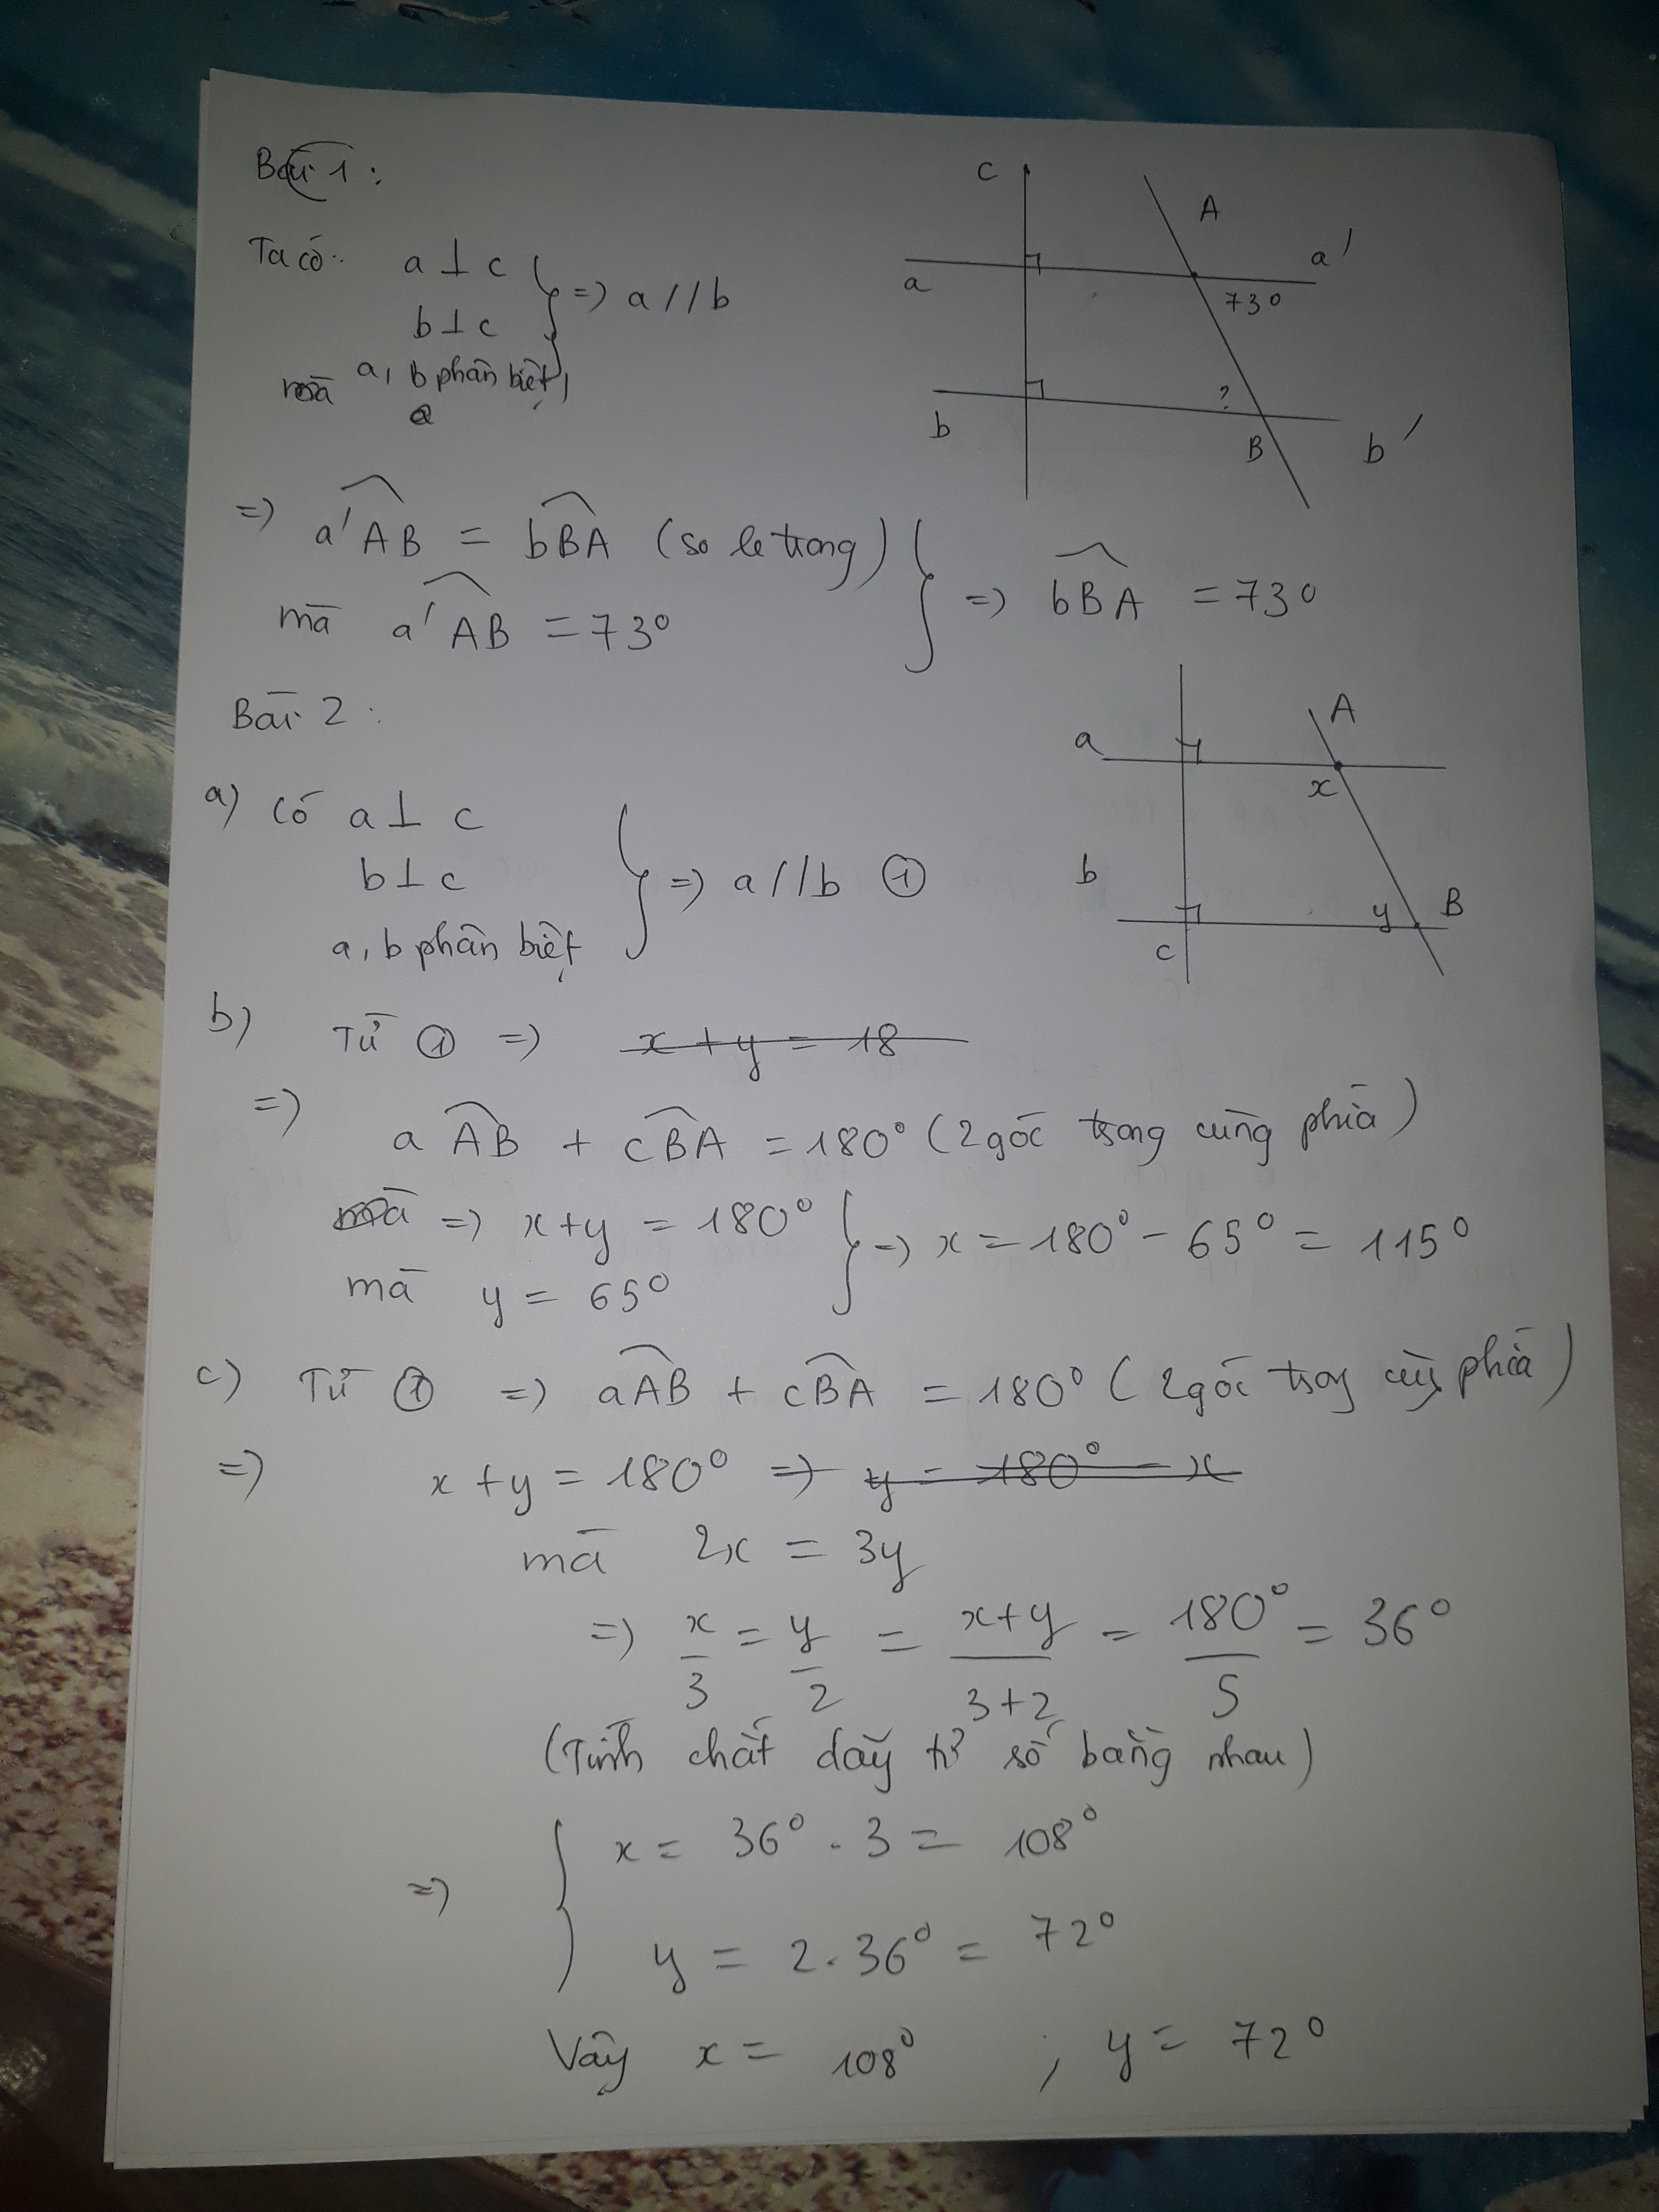 Bài 1 :
Ta có: a ⊥ c
b ⊥ c
} => a // b
mà a, b phân biệt
c
A
a'
a
73°
?
b
B
b'
=> a'AB = bBA (so le trong)
mà a'AB = 73°
} => bBA = 73°
Bài 2 :
A
a
x
b
y
B
c
a) Có a ⊥ c
b ⊥ c
a, b phân biệt
} => a // b ①
b) Từ ① => x + y = 18
=> aAB + cBA = 180° (2 góc trong cùng phía)
mà => x + y = 180°
mà y = 65°
} => x = 180° - 65° = 115°
c) Từ ① => aAB + cBA = 180° (2 góc trong cùng phía)
=> x + y = 180° => y = 180° - x
mà 2x = 3y
=> x/3 = y/2 = x+y/3+2 = 180°/5 = 36°
(Tính chất dãy tỉ số bằng nhau)
=> { x = 36° . 3 = 108°
y = 2 . 36° = 72°
Vậy x = 108° ; y = 72°